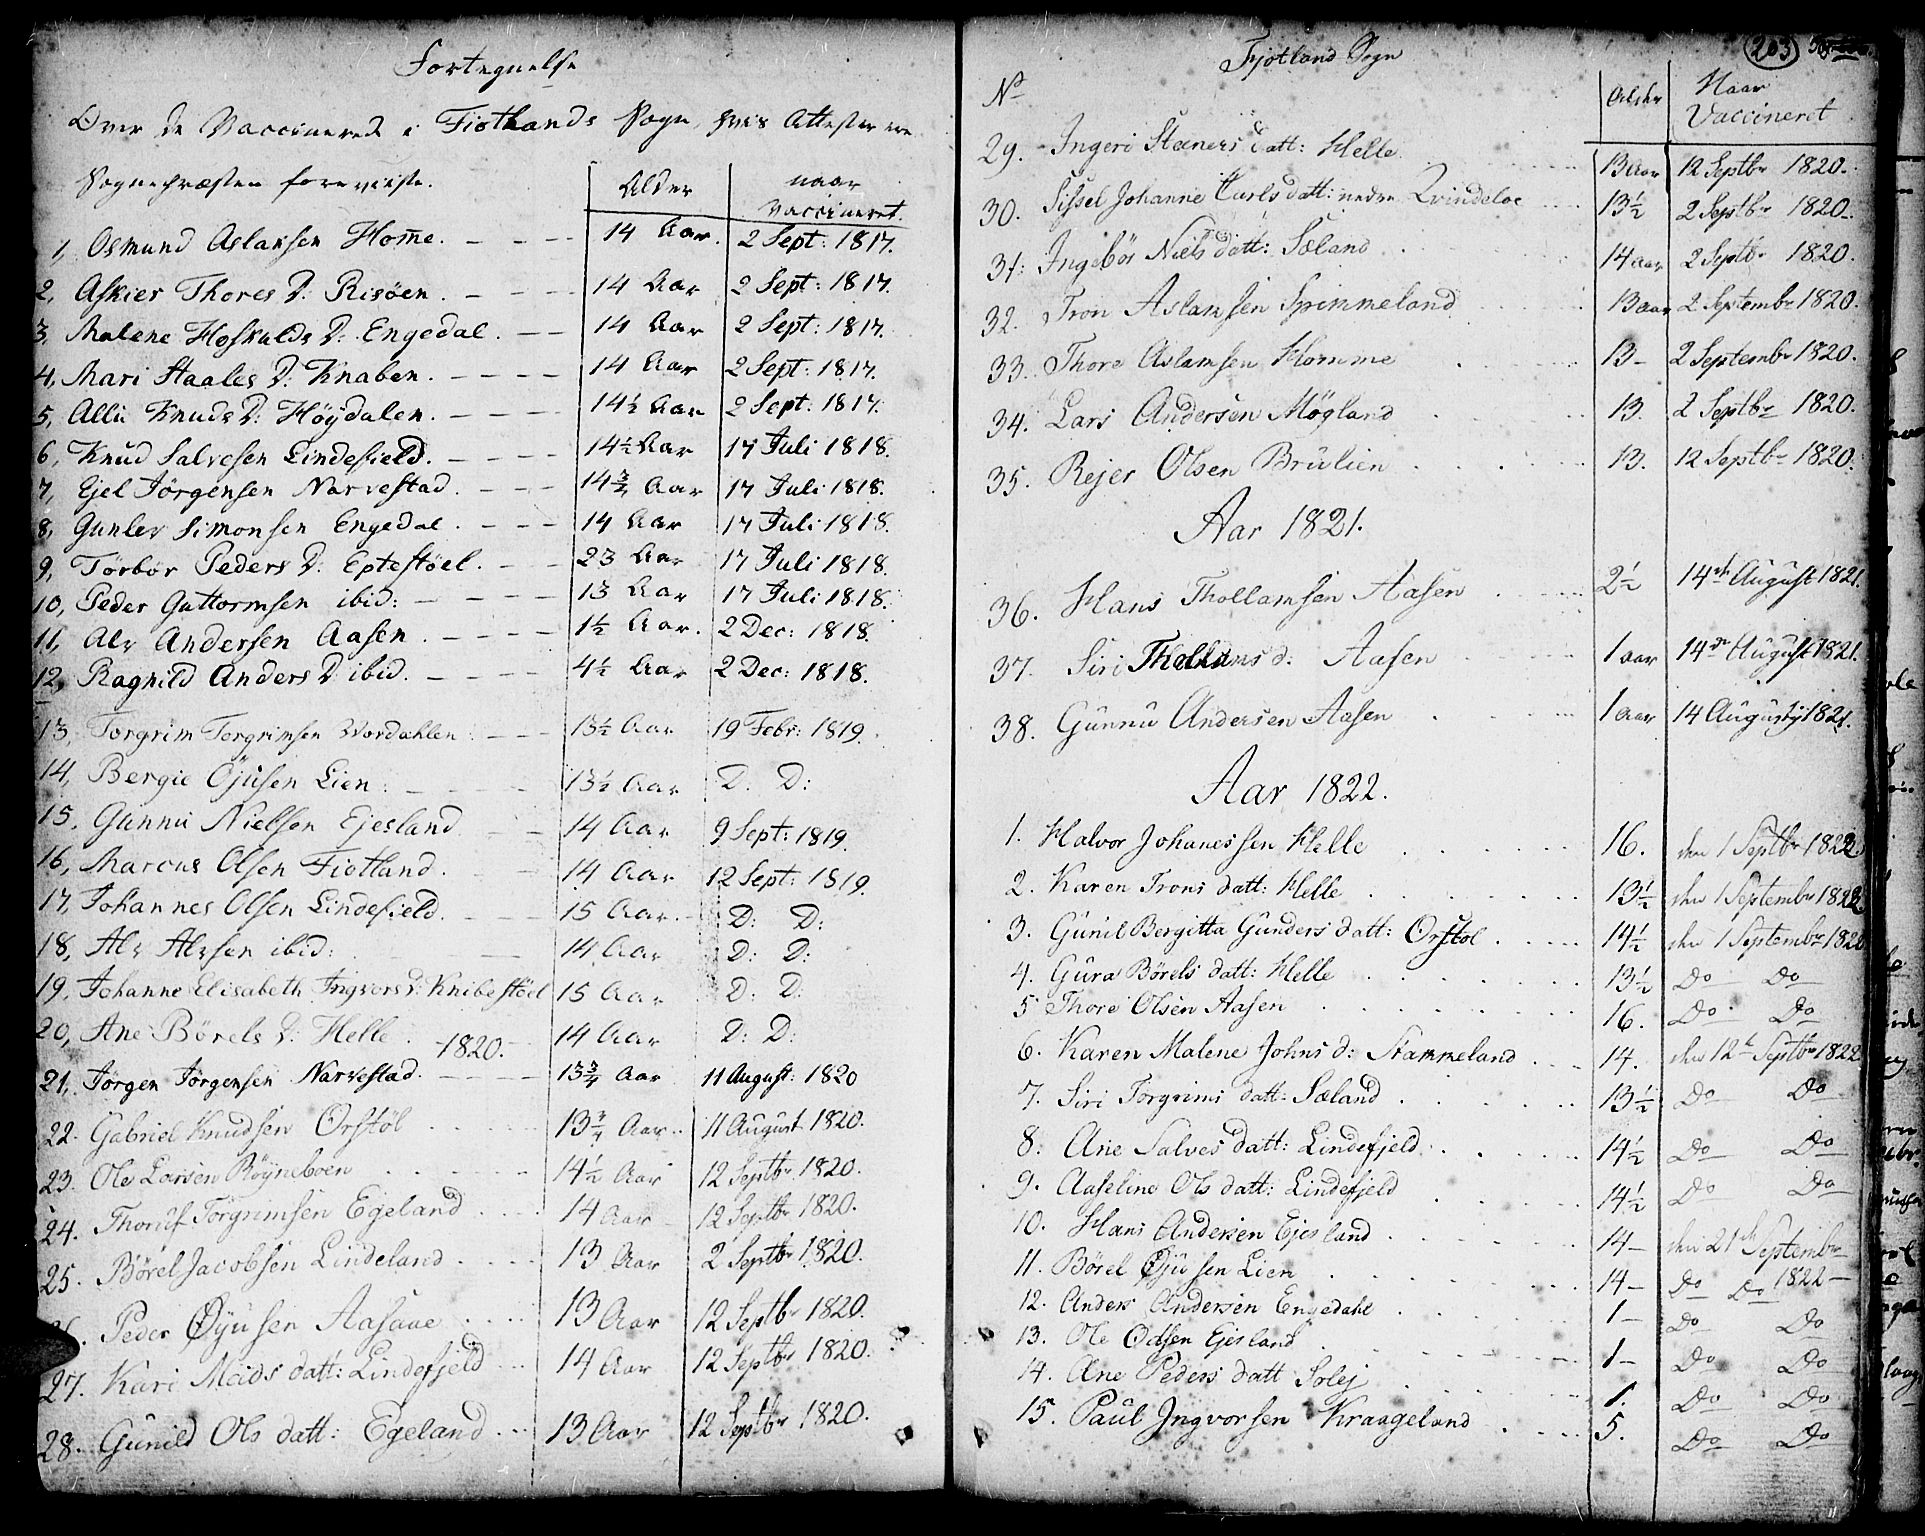 Fortegnelse
Over de Vaccinerede i Fiotlands Sogn, hvis Attester ere
Sognepræsten foreviiste.
Alder
naar
vaccineret.
1, Osmund Aslaksen Home. 14 Aar. 2 Sept: 1817.
2, Askier Thores D: Risöen. 14 Aar 2 Sept: 1817.
3, Malene Hoskulds D: Engedal. 14 Aar 2 Sept: 1817.
4, Mari Staales D: Knaben. 14 Aar 2 Sept: 1817.
5, Alli Knuds D: Höydalen. 14½ Aar 2 Sept: 1817.
6, Knud Salvesen Lindefield. 14½ Aar 17 Juli 1818.
7, Ejel Jörgensen Narvestad. 14¾ Aar 17 Juli 1818.
8, Gunler Simonsen Engedal. 14 Aar 17 Juli 1818.
9, Törbor Peders D: Eptestöel. 23 Aar 17 Juli 1818.
10, Peder Guttormsen ibid: 13 Aar 17 Juli 1818.
11, Alv Andersen Aasen. 1½ Aar. 2 Dec: 1818.
12, Ragnild Anders D: ibid. 4½ Aar 2 Dec: 1818.
13, Torgrim Torgrimsen Wordahlen 13½ Aar 19 Febr: 1819.
14, Bergie Öjusen Lien. 13½ Aar D: D:
15, Gunnu Nielsen Ejesland 14 Aar 9 Sept: 1819.
16, Marcus Olsen Fiotland. 14 Aar 12 Sept: 1819.
17, Johannes Olsen Lindefield. 15 Aar. D: D:
18, Alv Alvsen ibid: 14 Aar D: D:
19, Johanne Elisabeth Ingvors D: Knibestöel 15 Aar D: D:
20, Ane Börels D: Helle. 14 Aar D: D:
1820.
21, Jörgen Jörgensen Narvestad. 13¾ Aar 11 August: 1820
22. Gabriel Knudsen Orstöl 13¾ Aar 11 August 1820.
23. Ole Larsen Röyneboen 14½ Aar 12 Septbr 1820.
24. Thoruf Torgrimsen Egeland 14 Aar 12 Septbr 1820.
25. Börel Jacobsen Lindeland 13 Aar 2 Septbr 1820.
26. Peder Öyusen Aasaae 13 Aar 12 Septbr 1820.
27. Kari Mads datt: Lindefjeld 14 Aar 12 Septbr 1820.
28. Gunild Ols datt: Egeland 13 Aar 12 Septbr 1820.
Fjotland Sogn
203
No
Alder
Naar
Vaccineret
29. Ingeri Steners datt: Helle 13 Aar 12 Septbr 1820.
30. Sissel Johanne Carls datt: nedre Qvindeloe 13½ 2 Septbr 1820.
31. Ingebör Niels datt: Sæland 14 aar 2 Septbr 1820.
32. Tron Aslamsen Spimmeland 13 aar 2 Septembr 1820.
33. Thore Aslamsen Homme 13- 2 Septembr 1820.
34. Lars Andersen Mögland 13. 2 Septbr 1820.
35. Rejer Olsen Brulien 13. 12 Septbr 1820.
Aar 1821.
36. Hans Thollamsen Aasen 2½ 14de August 1821.
37. Siri Thollams d: Aasen 1 aar 14de August 1821.
38. Gunnu Andersen Aasen 1 aar 14 Augusty 1821.
Aar 1822.
1. Halvor Johanessen Helle 16. den 1 Septbr 1822.
2. Karen Trons datt: Helle 13½ den 1 Septembr 1822.
3. Gunil Bergitta Gunders datt: Orstöl 14½ den 1 Septembr 1822
4. Gura Börels datt: Helle 13½ Do Do
5 Thore Olsen Aasen 16. Do Do
6. Karen Malene Johns d: Stammeland 14. den 12te Septbr 1822
7. Siri Torgrims datt: Sæland 13½ Do Do
8. Ane Salves datt: Lindefjeld 14½ Do Do
9. Aaseline Ols datt: Lindefjeld 14½ Do Do
10. Hans Andersen Ejesland 14- den 21de Septembr
11. Börel Öjusen Lien 14- Do Do 1822-
12. Anders Andersen Engedahl 1- Do Do
13. Ole Odsen Ejesland 1- Do Do
14. Ane Peders datt Solej 1. Do Do
15. Paul Ingvorsen Kraageland 5. Do Do